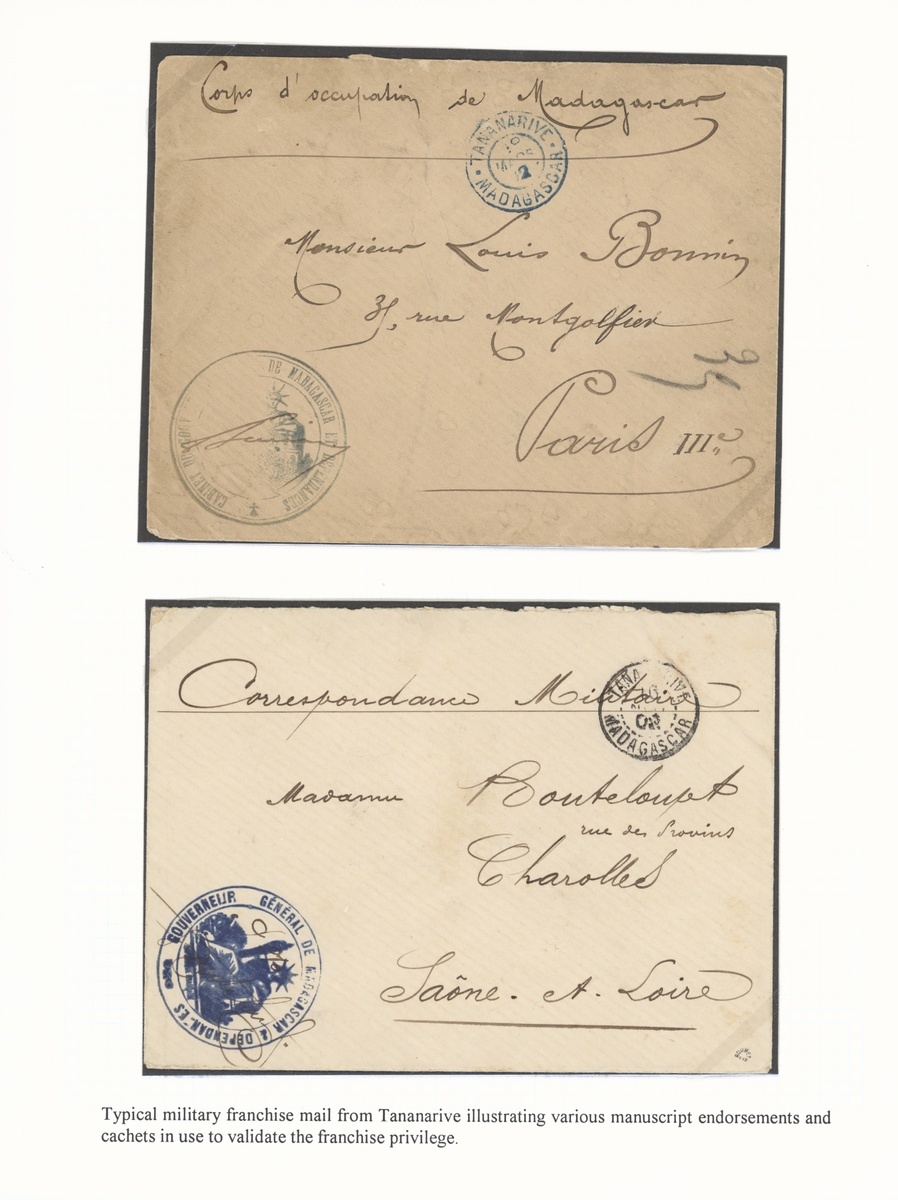 Corps d'occupation de Madagascar
TANANARIVE
MADAGASCAR
Monsieur Louis Bonnin
rue Montgolfier
Paris IIIe
35
CABINET DU DE MADAGASCAR ET DÉPENDANCES
Correspondance Militaire
TANA RIVE
MADAGASCAR
Madame Bouteloupt
rue des Provins
Charolles
Saône-et-Loire
GOUVERNEUR GÉNÉRAL DE MADAGASCAR & DÉPENDAN ES
Typical military franchise mail from Tananarive illustrating various manuscript endorsements and
cachets in use to validate the franchise privilege.